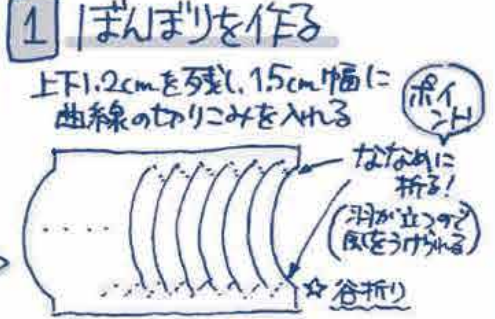 1 ぼんぼりを作る
上下1.2cmを残し、1.5cm幅に
曲線の切りこみを入れる
ポイ
ント!
ななめに
折る!
(羽が立つので
風をうけられる)
☆谷折り